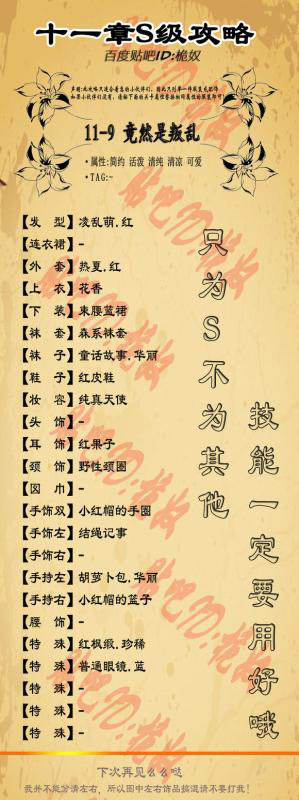 十一章S级攻略
百度贴吧ID:桅奴
声明:此攻略只适合着急的小伙伴们,因此只列举一件服装或配饰
如果小伙伴们没有,请按下面的关卡属性搭配相同属性的服装即可
11-9 竟然是叛乱
·属性:简约 活泼 清纯 清凉 可爱
·TAG:-
【发 型】凌乱萌.红
【连衣裙】-
【外 套】热夏.红
【上 衣】花香
【下 装】束腰蓝裙
【袜 套】森系袜套
【袜 子】童话故事.华丽
【鞋 子】红皮鞋
【妆 容】纯真天使
【头 饰】-
【耳 饰】红果子
【颈 饰】野性颈圈
【围 巾】-
【手饰双】小红帽的手圈
【手饰左】结绳记事
【手饰右】-
【手持左】胡萝卜包.华丽
【手持右】小红帽的篮子
【腰 饰】-
【特 殊】红枫缎.珍稀
【特 殊】普通眼镜.蓝
【特 殊】-
【特 殊】-
【特 殊】-
只为S不为其他
技能一定要用好哦
贴吧ID:桅奴
贴吧ID:桅奴
贴吧ID:桅奴
贴吧ID:桅奴
下次再见么么哒
我并不能分清左右,所以图中左右饰品搞混请不要打我!